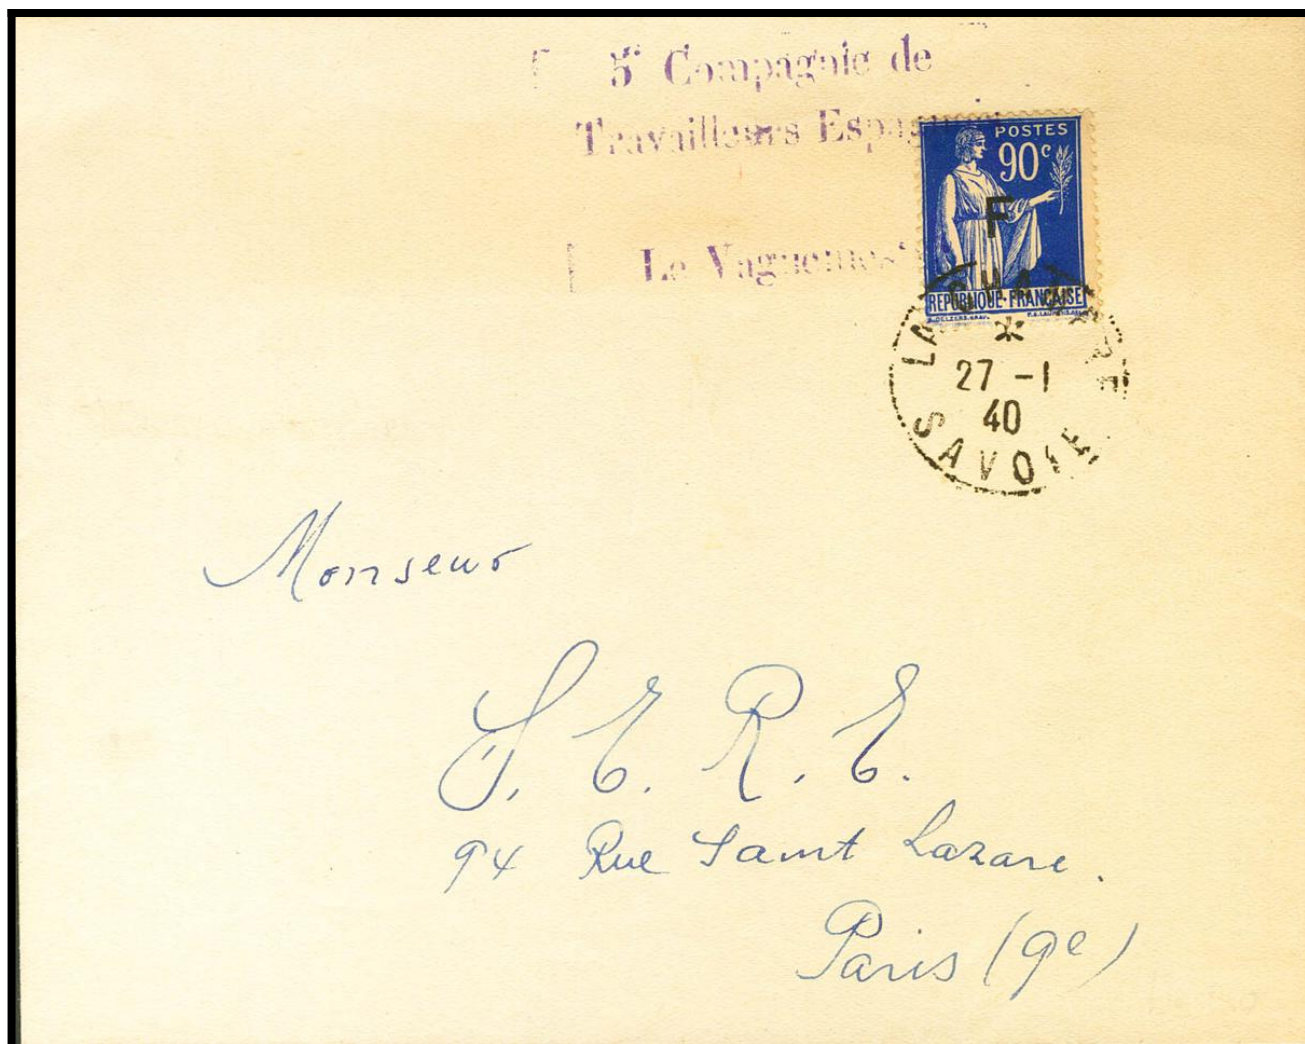 5e Compagnie de
Travailleurs
Le Vaguemes
POSTES
90c
F
REPUBLIQUE FRANÇAISE
LA CHAMBRE
27 -1
40
SAVOIE
Monseur
S. E. R. E.
94 Rue Saint Lazare.
Paris (9e)